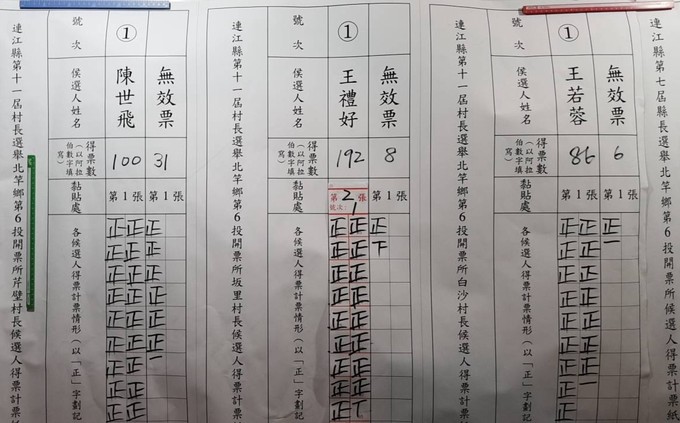 號次
①
候選人姓名
陳世飛
無效票
得票數
(以阿拉伯數字填寫)
100
31
黏貼處
第1張
第1張
各候選人得票計票情形(以「正」字劃記
正正正
正正正
正正正
正正正
正正正
正正正
正正一
正正
正正
正正
連江縣第十一屆村長選舉北竿鄉第6投開票所芹壁村長候選人得票計票紙
號次
①
候選人姓名
王禮好
無效票
得票數
(以阿拉伯數字填寫)
192
8
黏貼處
第2張
號次:1
第1張
各候選人得票計票情形(以「正」字劃記
正正正
正正下
正正
正正
正正
正正
正正
正正
正正
正丅
連江縣第十一屆村長選舉北竿鄉第6投開票所坂里村長候選人得票計票
號次
①
候選人姓名
王若蓉
無效票
得票數
(以阿拉伯數字填寫)
86
6
黏貼處
第1張
第1張
各候選人得票計票情形(以「正」字劃記
正正正
正正一
正正
正正
正正
正正
正正
正一
正
正
連江縣第十一屆村長選舉北竿鄉第6投開票所白沙村長候選人得票計票
連江縣第七屆縣長選舉北竿鄉第6投開票所候選人得票計票紙